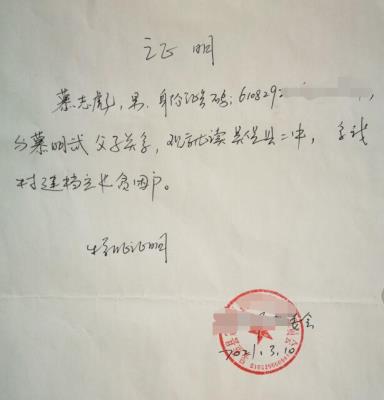 证明
慕志彪,男,身份证号码:610829
与慕明武父子关系,现就读吴堡县二中,系我
村建档立卡贫困户。
特此证明
委会
2021.3.10